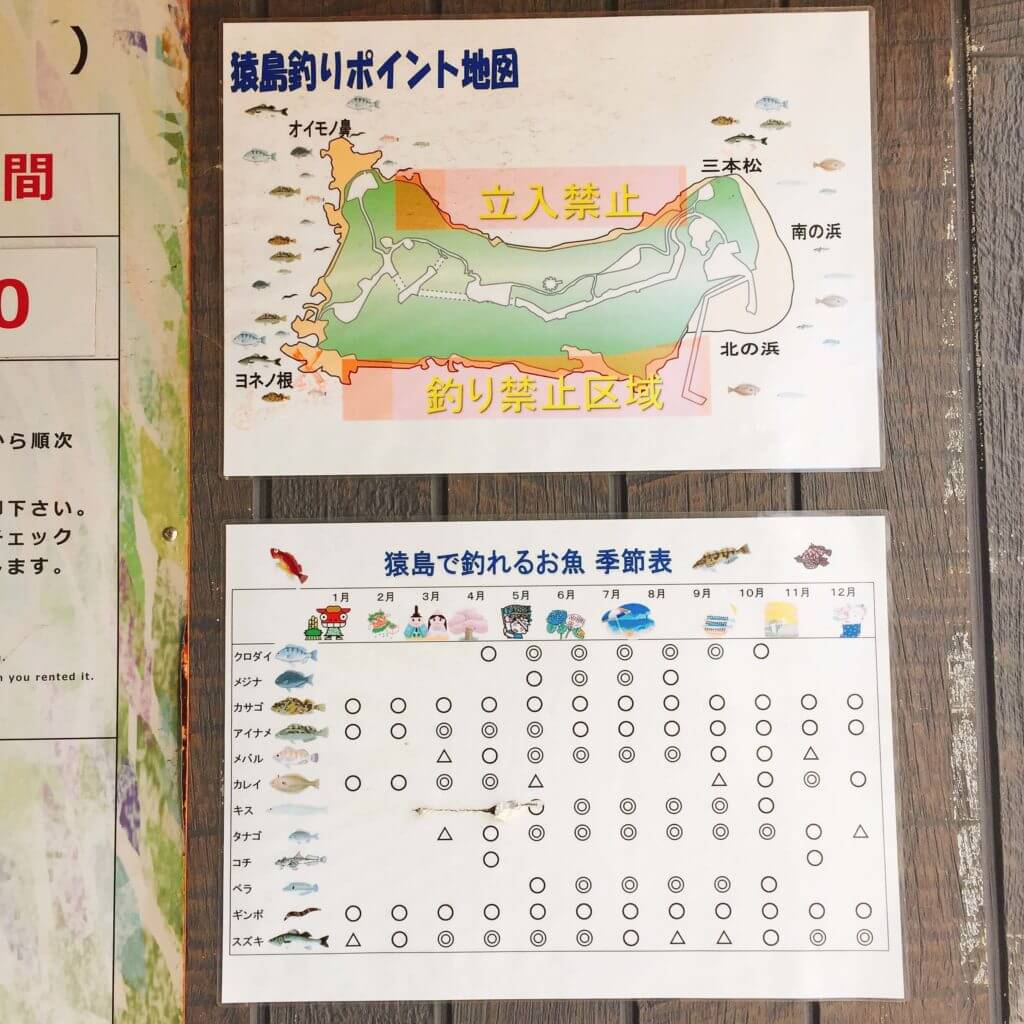 )
間
0
から順次
下さい。
チェック
します。
n you rented it.
猿島釣りポイント地図
オイモノ鼻
三本松
立入禁止
南の浜
北の浜
釣り禁止区域
ヨネノ根
猿島で釣れるお魚 季節表
1月 2月 3月 4月 5月 6月 7月 8月 9月 10月 11月 12月
クロダイ ○ ◎ ◎ ◎ ◎ ◎ ○
メジナ ○ ◎ ◎ ○
カサゴ ○ ○ ○ ○ ○ ○ ○ ○ ○ ○ ○ ○
アイナメ ○ ○ ◎ ◎ ◎ ○ ○ ○ ○ ○ ○ ○
メバル △ ○ ◎ ◎ ◎ ◎ ○ ○ △
カレイ ○ ○ ◎ ◎ △ △ ○ ◎ ○
キス ○ ◎ ◎ ◎ ◎ ○
タナゴ △ ○ ◎ ◎ ◎ ◎ ◎ ◎ ○ △
コチ ○ ○
ベラ ○ ◎ ◎ ◎ ◎ ○
ギンポ ○ ○ ○ ○ ○ ○ ○ ○ ○ ○ ○ ○
スズキ △ ○ ◎ ◎ ◎ ◎ ○ △ △ ○ ◎ ◎